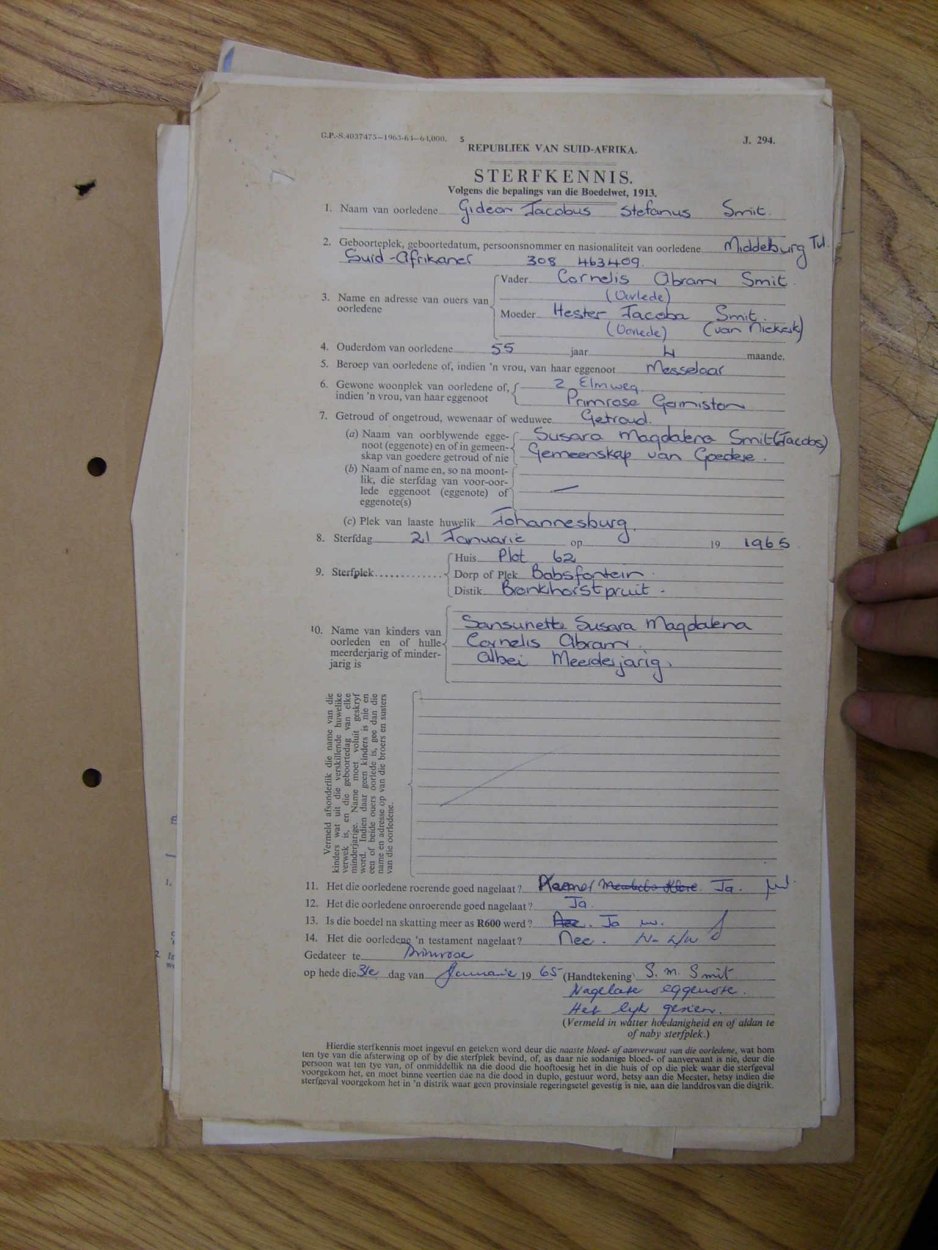 G.P.-S.4037475—1963-64—64,000. 5
J. 294.
REPUBLIEK VAN SUID-AFRIKA.
STERFKENNIS.
Volgens die bepalings van die Boedelwet, 1913.
1. Naam van oorledene Gideon Jacobus Stefanus Smit.
2. Geboorteplek, geboortedatum, persoonsnommer en nasionaliteit van oorledene Middelburg Tvl.
Suid-Afrikaner 308 463409.
3. Name en adresse van ouers van oorledene
Vader Cornelis Abram Smit
(Oorlede)
Moeder Hester Jacoba Smit.
(Oorlede) (van Niekerk)
4. Ouderdom van oorledene 55 jaar 4 maande.
5. Beroep van oorledene of, indien 'n vrou, van haar eggenoot Messelaar
6. Gewone woonplek van oorledene of, indien 'n vrou, van haar eggenoot
2 Elmweg.
Primrose Germiston
7. Getroud of ongetroud, wewenaar of weduwee Getroud.
(a) Naam van oorblywende eggenoot (eggenote) en of in gemeenskap van goedere getroud of nie
Susara Magdalena Smit (Jacobs)
Gemeenskap van Goedere.
(b) Naam of name en, so na moontlik, die sterfdag van voor-oorlede eggenoot (eggenote) of eggenote(s) —
(c) Plek van laaste huwelik Johannesburg.
8. Sterfdag 21 Januarie op 19 1965
9. Sterfplek
Huis Plot 62
Dorp of Plek Babsfontein.
Distik Bronkhorstpruit.
10. Name van kinders van oorleden en of hulle meerderjarig of minderjarig is
Sansunette Susara Magdalena
Cornelis Abram.
Albei Meerderjarig.
Vermeld afsonderlik die name van die
kinders wat uit die verskillende huwelike
verwek is, en die geboortedag van elke
minderjarige. Name moet voluit geskryf
word. Indien daar geen kinders is nie en
een of beide ouers oorlede is, gee dan die
name en adresse op van die broers en susters
van die oorledene.
11. Het die oorledene roerende goed nagelaat? Ja.
12. Het die oorledene onroerende goed nagelaat? Ja.
13. Is die boedel na skatting meer as R600 werd? Nee. Ja
14. Het die oorledene 'n testament nagelaat? Nee.
Gedateer te Primrose
op hede die 31e dag van Januarie 19 65 (Handtekening) S. M. Smit
Nagelate eggenote.
Het lyk gesien.
(Vermeld in watter hoedanigheid en of aldan te
of naby sterfplek.)
Hierdie sterfkennis moet ingevul en geteken word deur die naaste bloed- of aanverwant van die oorledene, wat hom
ten tye van die afsterwing op of by die sterfplek bevind, of, as daar nie sodanige bloed- of aanverwant is nie, deur die
persoon wat ten tye van, of onmiddellik na die dood die hooftoesig het in die huis of op die plek waar die sterfgeval
voorgekom het, en moet binne veertien dae na die dood in duplo, gestuur word, hetsy aan die Meester, hetsy indien die
sterfgeval voorgekom het in 'n distrik waar geen provinsiale regeringsetel gevestig is nie, aan die landdros van die distrik.